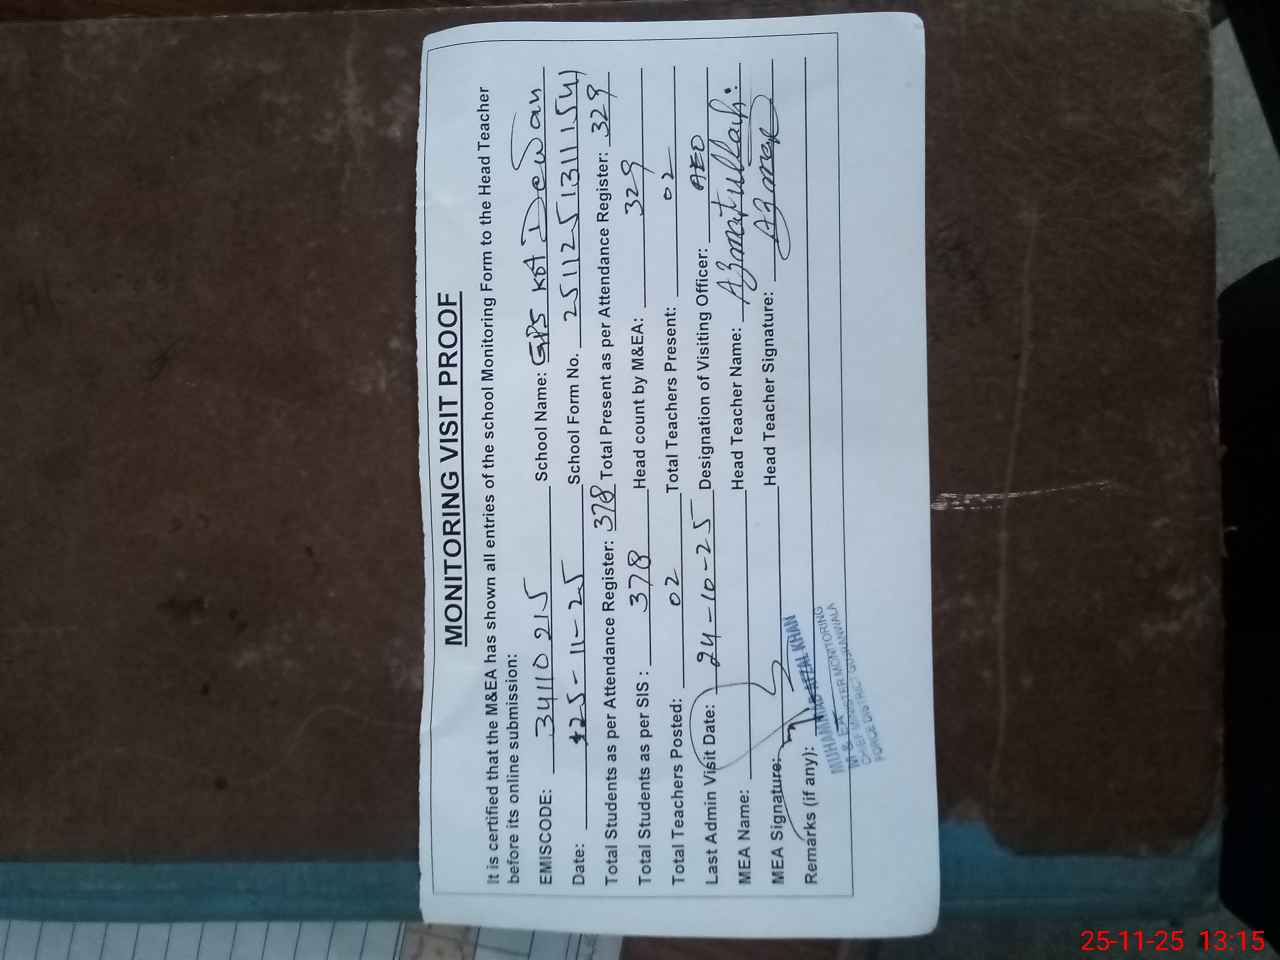 MONITORING VISIT PROOF
It is certified that the M&EA has shown all entries of the school Monitoring Form to the Head Teacher
before its online submission:
EMISCODE: 34110215 School Name: GPS Kot Dewan
Date: 25-11-25 School Form No. 251125131154
Total Students as per Attendance Register: 378 Total Present as per Attendance Register: 329
Total Students as per SIS : 378 Head count by M&EA: 329
Total Teachers Posted: 02 Total Teachers Present: 02
Last Admin Visit Date: 24-10-25 Designation of Visiting Officer: AEO
MEA Name: Head Teacher Name: Azmatullah
MEA Signature: Head Teacher Signature: Azmat
Remarks (if any):
MUHAMMAD AFZAL KHAN
M & EA
CHIEF MINISTER MONITORING
FORCE DISTRICT GUJRANWALA
25-11-25 13:15